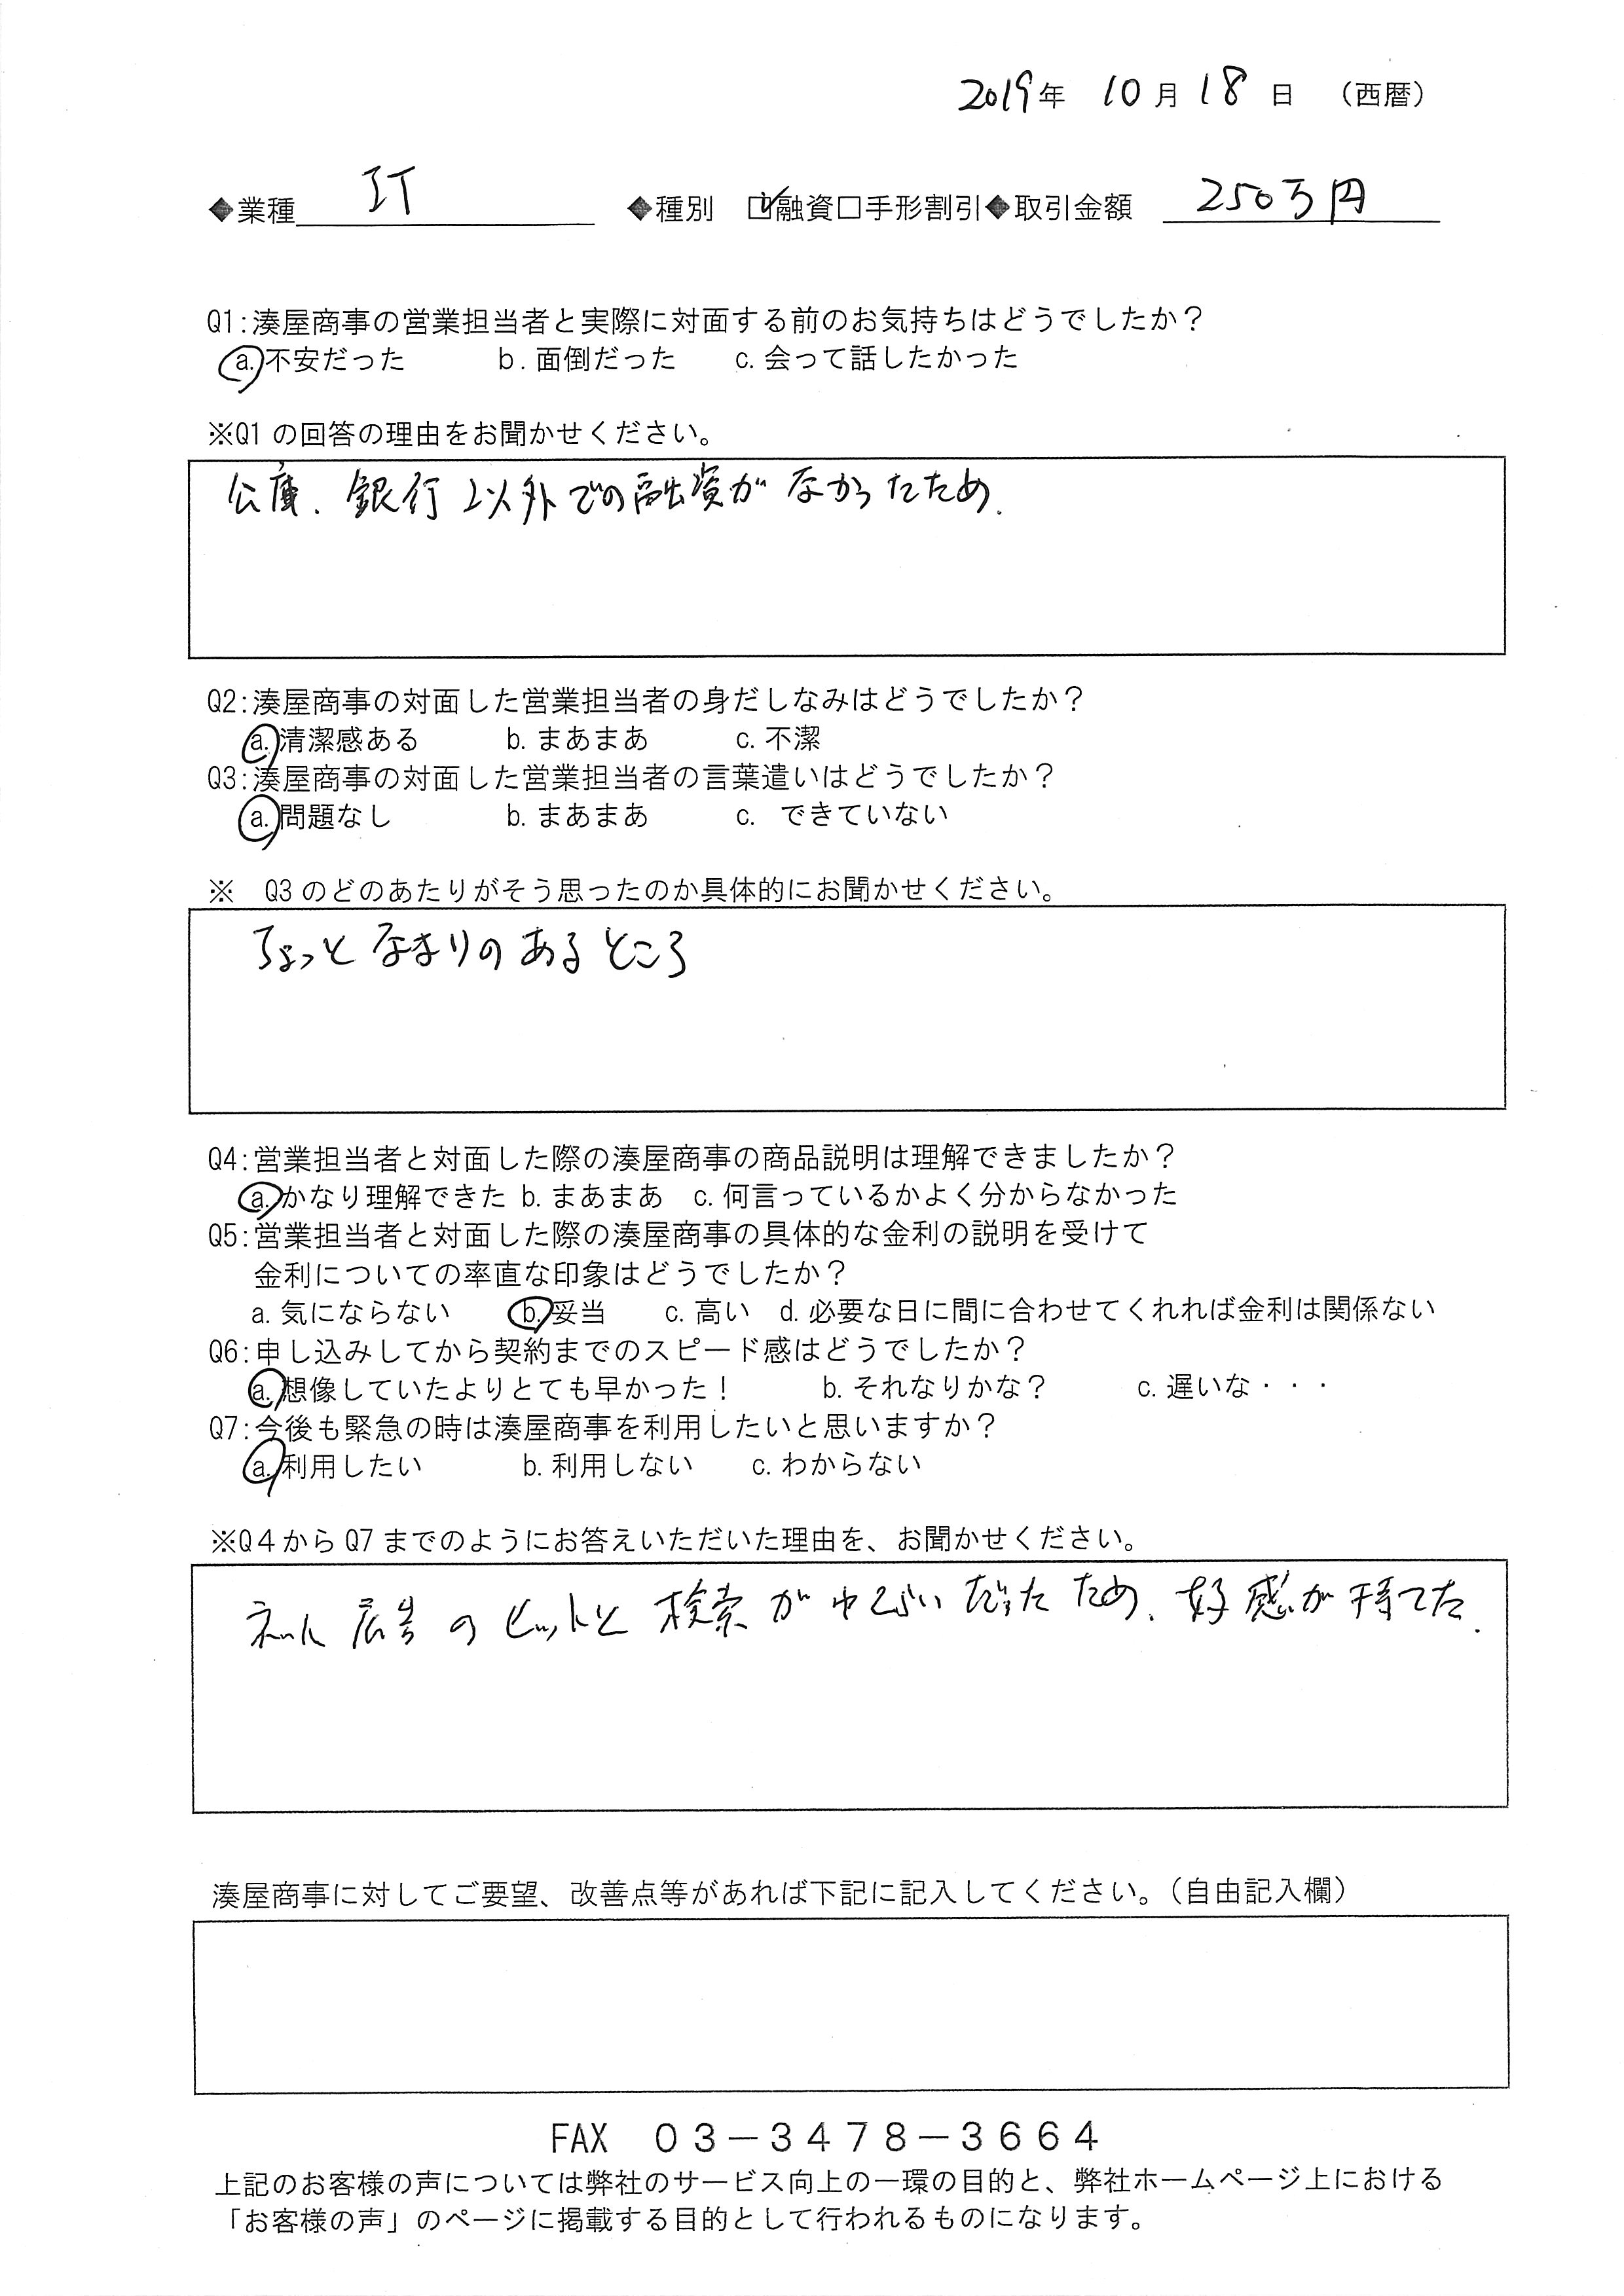 2019年 10月 18日 （西暦）
◆業種 IT ◆種別 ☑融資□手形割引◆取引金額 250万円
Q1:湊屋商事の営業担当者と実際に対面する前のお気持ちはどうでしたか？
a.不安だった b.面倒だった c.会って話したかった
※Q1の回答の理由をお聞かせください。
公庫、銀行以外での融資がなかったため.
Q2:湊屋商事の対面した営業担当者の身だしなみはどうでしたか？
a.清潔感ある b.まあまあ c.不潔
Q3:湊屋商事の対面した営業担当者の言葉遣いはどうでしたか？
a.問題なし b.まあまあ c. できていない
※ Q3のどのあたりがそう思ったのか具体的にお聞かせください。
ちょっとなまりのあるところ
Q4:営業担当者と対面した際の湊屋商事の商品説明は理解できましたか？
a.かなり理解できた b.まあまあ c.何言っているかよく分からなかった
Q5:営業担当者と対面した際の湊屋商事の具体的な金利の説明を受けて
金利についての率直な印象はどうでしたか？
a.気にならない b.妥当 c.高い d.必要な日に間に合わせてくれれば金利は関係ない
Q6:申し込みしてから契約までのスピード感はどうでしたか？
a.想像していたよりとても早かった！ b.それなりかな？ c.遅いな・・・
Q7:今後も緊急の時は湊屋商事を利用したいと思いますか？
a.利用したい b.利用しない c.わからない
※Q４からQ7までのようにお答えいただいた理由を、お聞かせください。
ネット広告のヒットと検索が だったため、好感が持てた.
湊屋商事に対してご要望、改善点等があれば下記に記入してください。（自由記入欄）
FAX ０３－３４７８－３６６４
上記のお客様の声については弊社のサービス向上の一環の目的と、弊社ホームページ上における
「お客様の声」のページに掲載する目的として行われるものになります。